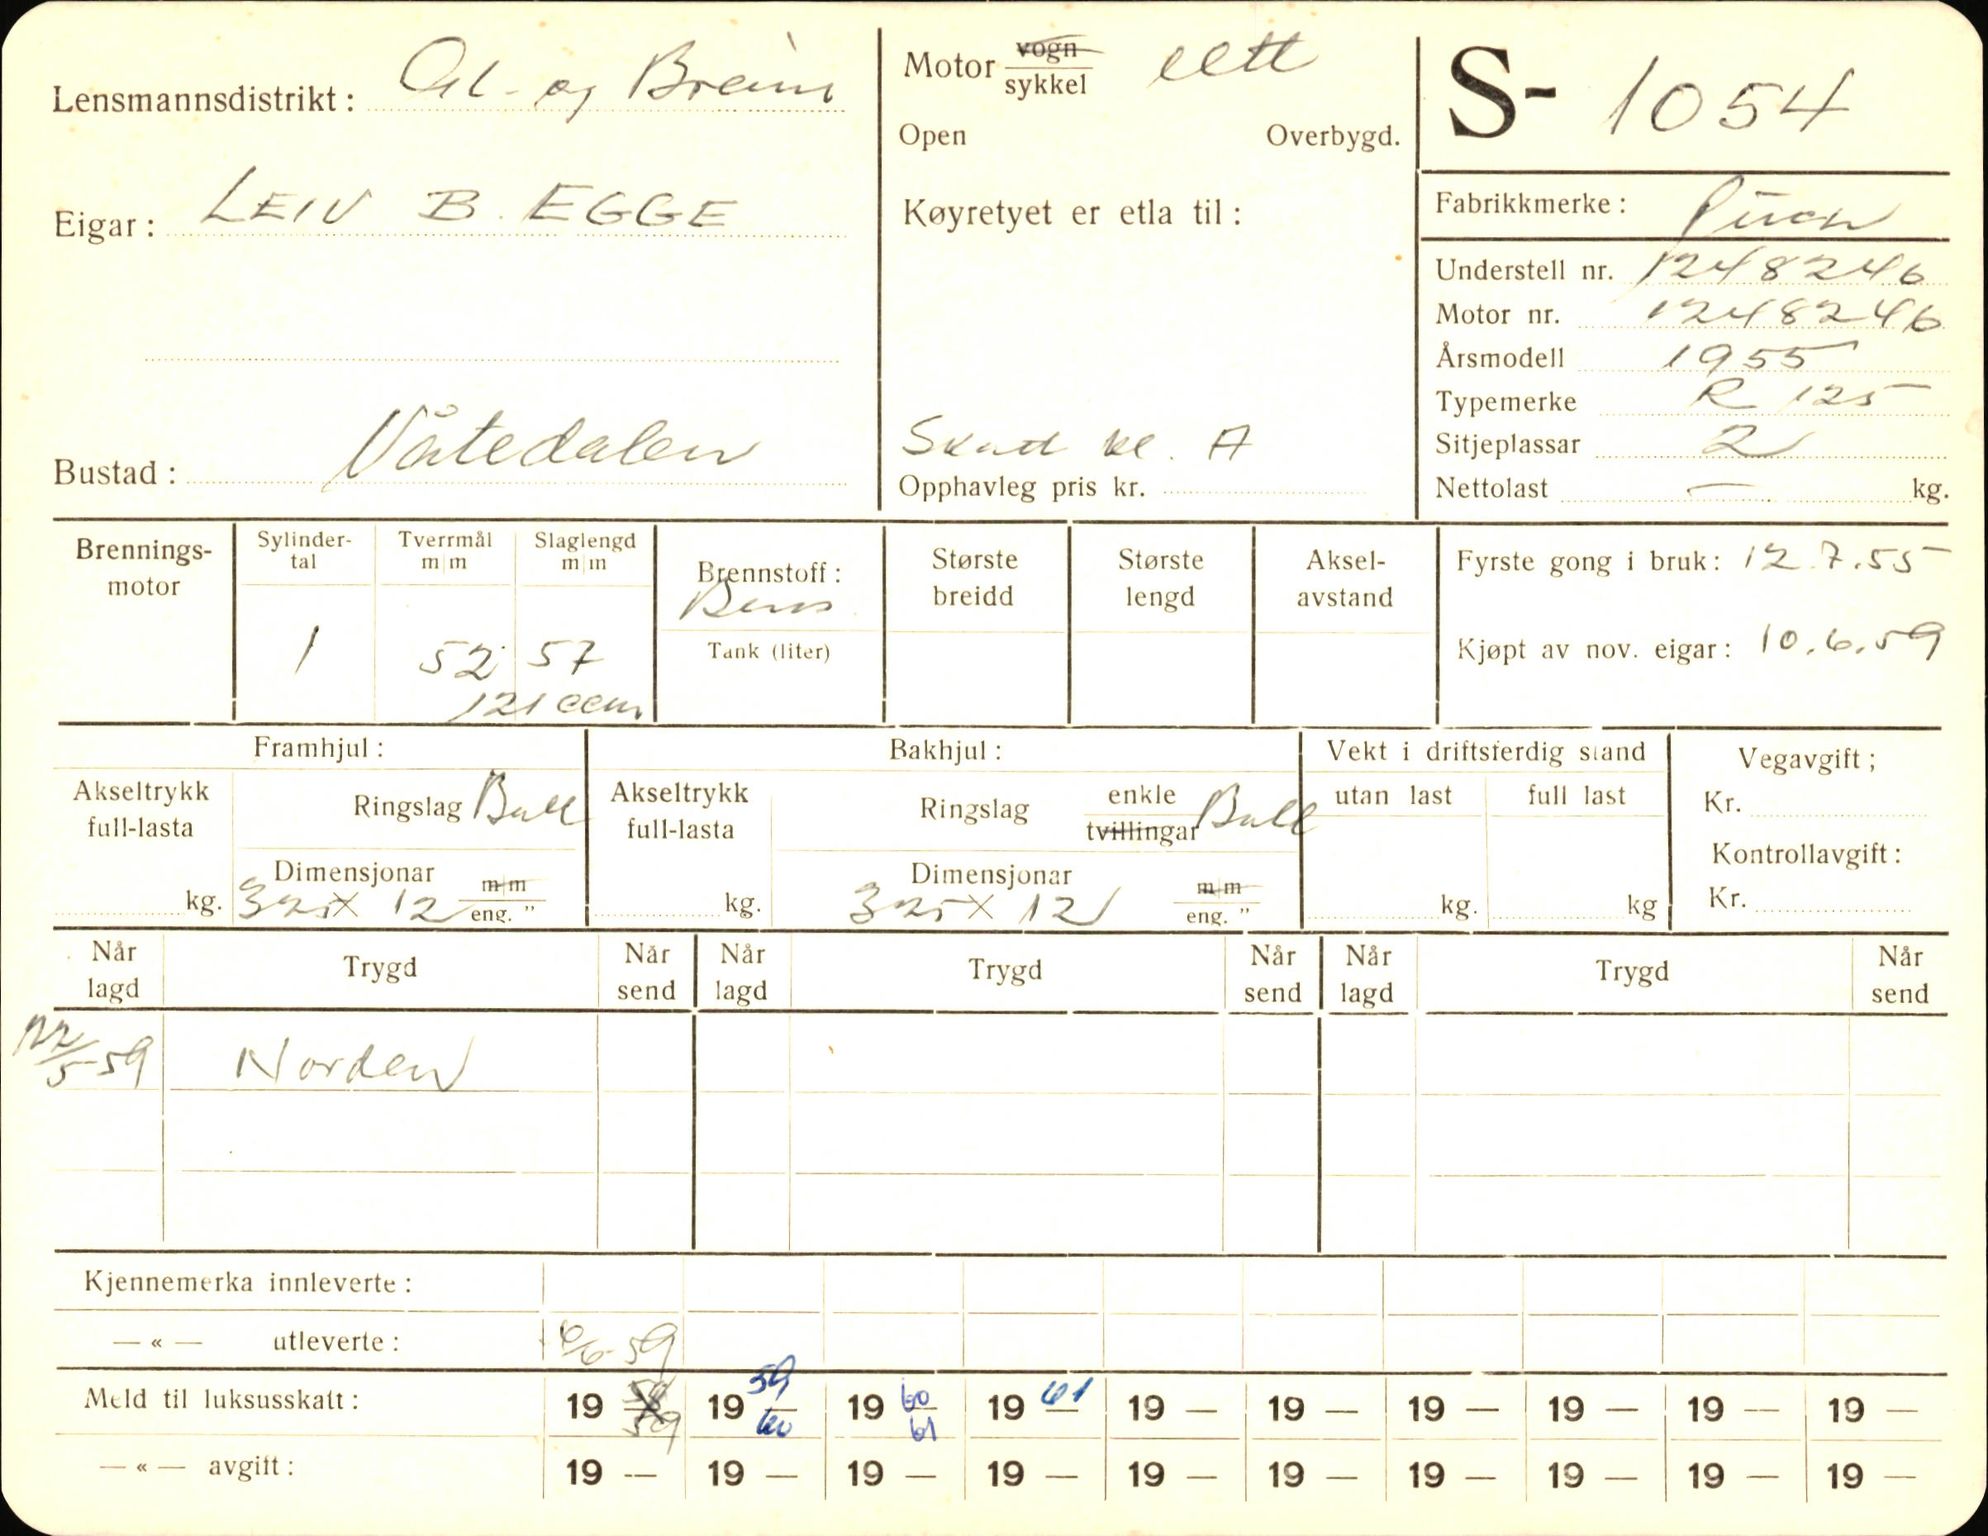 Lensmannsdistrikt: Gl. og Breim
Eigar: LEIV B. EGGE
Bustad: Våtedalen
Motor vogn
sykkel lett
Open Overbygd.
Køyretyet er etla til:
Skatt kl. A
Opphavleg pris kr.
S- 1054
Fabrikkmerke: Puch
Understell nr. 1248246
Motor nr. 1248246
Årsmodell 1955
Typemerke R 125
Sitjeplassar 2
Nettolast — kg.
Brennings-
motor
Sylinder-
tal
1
Tverrmål
m|m
52
Slaglengd
m|m
57
121 ccm
Brennstoff:
Bens
Tank (liter)
Største
breidd
Største
lengd
Aksel-
avstand
Fyrste gong i bruk: 12.7.55
Kjøpt av nov. eigar: 10.6.59
Framhjul:
Akseltrykk
full-lasta
kg.
Ringslag Ball
Dimensjonar
325 X 12 m|m
eng. "
Bakhjul:
Akseltrykk
full-lasta
kg.
Ringslag enkle
tvillingar Ball
Dimensjonar
325 X 12 m|m
eng. "
Vekt i driftsferdig stand
utan last full last
kg. kg
Vegavgift;
Kr.
Kontrollavgift:
Kr.
Når
lagd Trygd Når
send Når
lagd Trygd Når
send Når
lagd Trygd Når
send
22/5-59 Norden
Kjennemerka innleverte:
— « — utleverte: 6/6-59
Meld til luksusskatt: 19 58/59 19 59/60 19 60/61 19 61 19 — 19 — 19 — 19 — 19 — 19 —
— « — avgift: 19 — 19 — 19 — 19 — 19 — 19 — 19 — 19 — 19 — 19 —